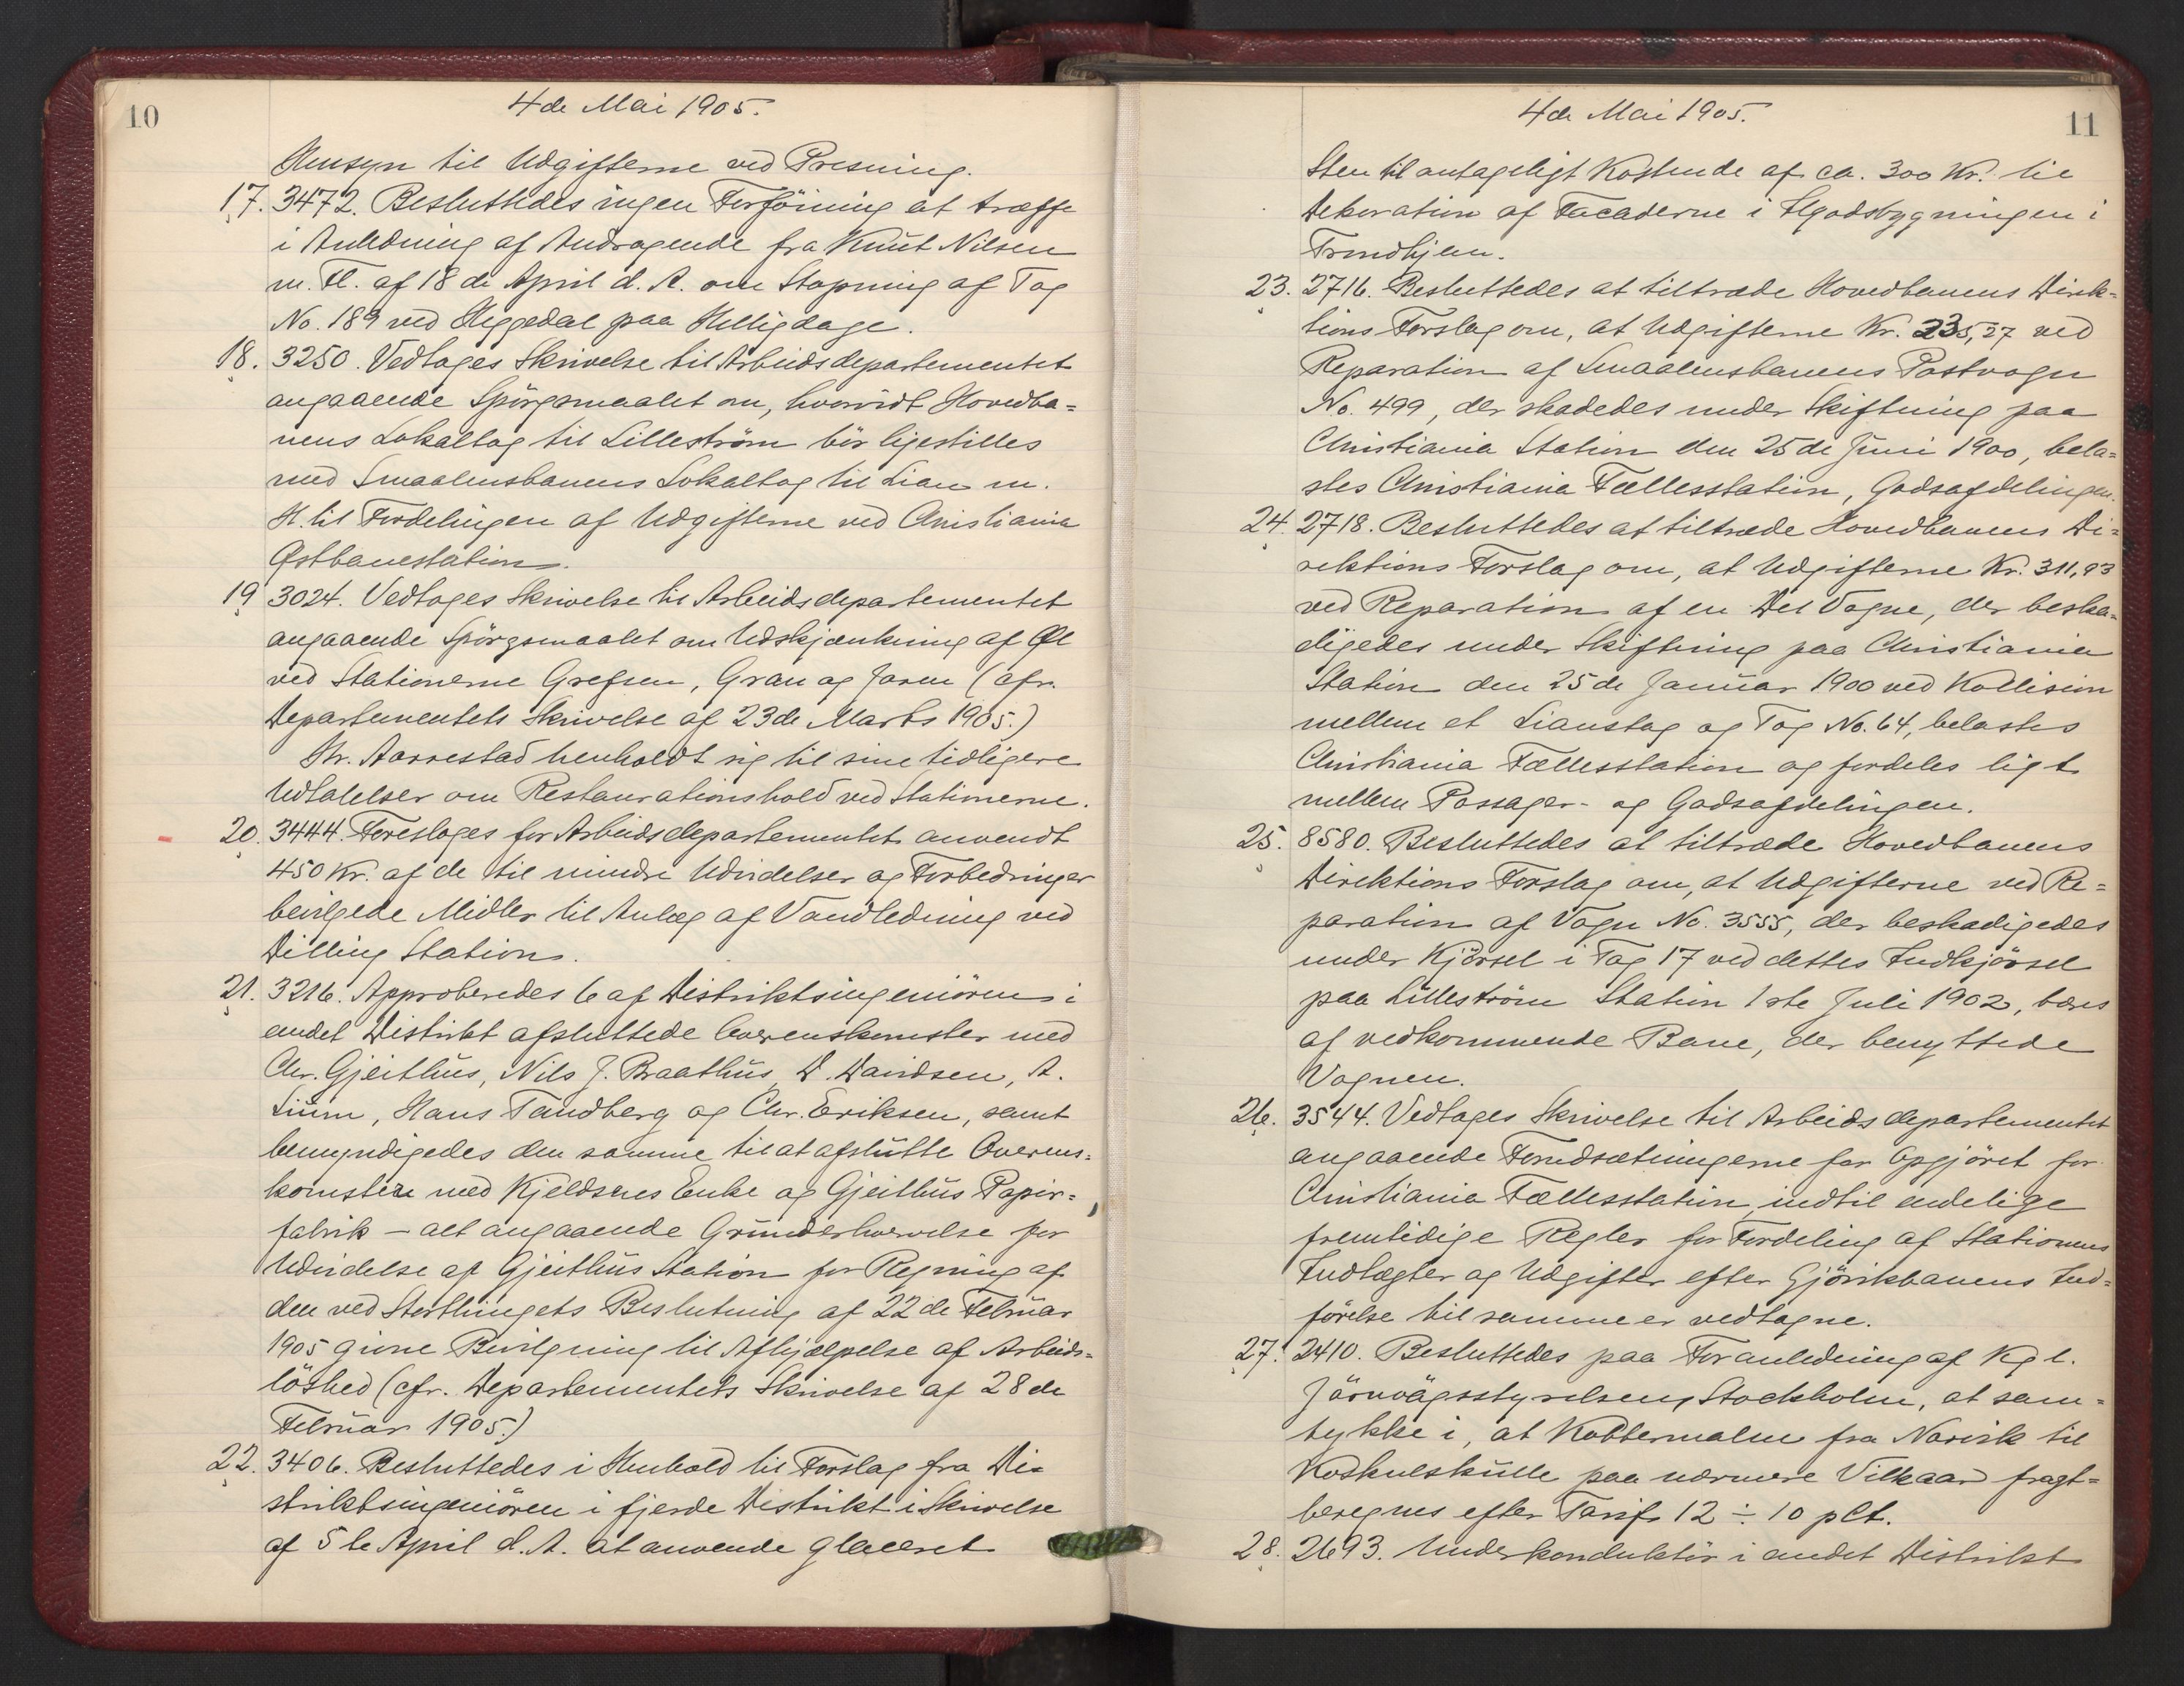 10
4de Mai 1905.
Hensyn til Udgifterne ved Presning.
17. 3472. Besluttedes ingen Forföining at træffe
i Anledning af Andragende fra Knut Nilsen
m. Fl. af 18de April d. A. om Stopning af Tog
No. 189 ved Heggedal paa Helligdage.
18. 3250. Vedtoges Skrivelse til Arbeidsdepartementet
angaaende Spörgsmaalet om, hvorvidt Hovedba=
nens Lokaltog til Lilleström bör ligestilles
med Smaalensbanens Lokaltog til Lian m.
H. til Fordelingen af Udgifterne ved Christiania
Østbanestation.
19 3024. Vedtoges Skrivelse til Arbeidsdepartementet
angaaende Spörgsmaalet om Udskjænkning af Øl
ved Stationerne Grefsen, Gran og Jaren (cfr.
Departementets Skrivelse af 23de Marts 1905.)
Hr. Aarrestad henholdt sig til sine tidligere
Udtalelser om Restaurationshold ved Stationerne.
20. 3444. Foresloges for Arbeidsdepartementet anvendt
450 Kr. af de til mindre Udvidelser og Forbedringer
bevilgede Midler til Anlæg af Vandledning ved
Dilling Station.
21. 3216. Approberedes 6 af Distriktsingeniören i
andet Distrikt afsluttede Overenskomster med
Chr. Gjeithus, Nils J. Braathus, D. Davidsen, A.
Lium, Hans Tandberg og Chr. Eriksen, samt
bemyndigedes den samme til at afslutte Overens=
komster med Kjeldsens Enke og Gjeithus Papir=
fabrik – alt angaaende Grunderhvervelse for
Udvidelse af Gjeithus Station for Regning af
den ved Storthingets Beslutning af 22de Februar
1905 givne Bevilgning til Afhjælpelse af Arbeids=
löshed (cfr. Departementets Skrivelse af 28de
Februar 1905.)
22. 3406. Besluttedes i Henhold til Forslag fra Di=
striktsingeniören i fjerde Distrikt i Skrivelse
af 5te April d. A. at anvende glaceret
11
4de Mai 1905.
Sten til antageligt Kostende af ca. 300 Kr. til
Dekoration af Facaderne i Ilgodsbygningen i
Trondhjem.
23. 2716. Besluttedes at tiltræde Hovedbanens Direk=
tions Forslag om, at Udgifterne Kr. 235,27 ved
Reparation af Smaalensbanens Postvogn
No. 499, der skadedes under Skiftning paa
Christiania Station den 25de Juni 1900, bela=
stes Christiania Fællesstation, Godsafdelingen.
24. 2718. Besluttedes at tiltræde Hovedbanens Di=
rektions Forslag om, at Udgifterne Kr. 311,93
ved Reparation af en Del Vogne, der beska=
digedes under Skiftning paa Christiania
Station den 25de Januar 1900 ved Kollision
mellem et Lianstog og Tog No. 64, belastes
Christiania Fællesstation og fordeles ligt
mellem Passager- og Godsafdelingen.
25. 8580. Besluttedes at tiltræde Hovedbanens
Direktions Forslag om, at Udgifterne ved Re=
paration af Vogn No. 3555, der beskadigedes
under Kjörsel i Tog 17 ved dettes Indkjörsel
paa Lilleström Station 1ste Juli 1902, bæres
af vedkommende Bane, der benyttede
Vognen.
26. 3544. Vedtoges Skrivelse til Arbeidsdepartementet
angaaende Forudsætningerne for Opgjöret for
Christiania Fællesstation, indtil endelige
fremtidige Regler for Fordeling af Stationens
Indtægter og Udgifter efter Gjövikbanens Ind=
förelse til samme er vedtagne.
27. 2410. Besluttedes paa Foranledning af Kgl.
Järnvägsstyrelsen, Stockholm, at sam=
tykke i, at Kobbermalm fra Narvik til
Koskulskulle paa nærmere Vilkaar fragt=
beregnes efter Tarif 12 ÷ 10 pCt.
28. 2693. Underkonduktör i andet Distrikt